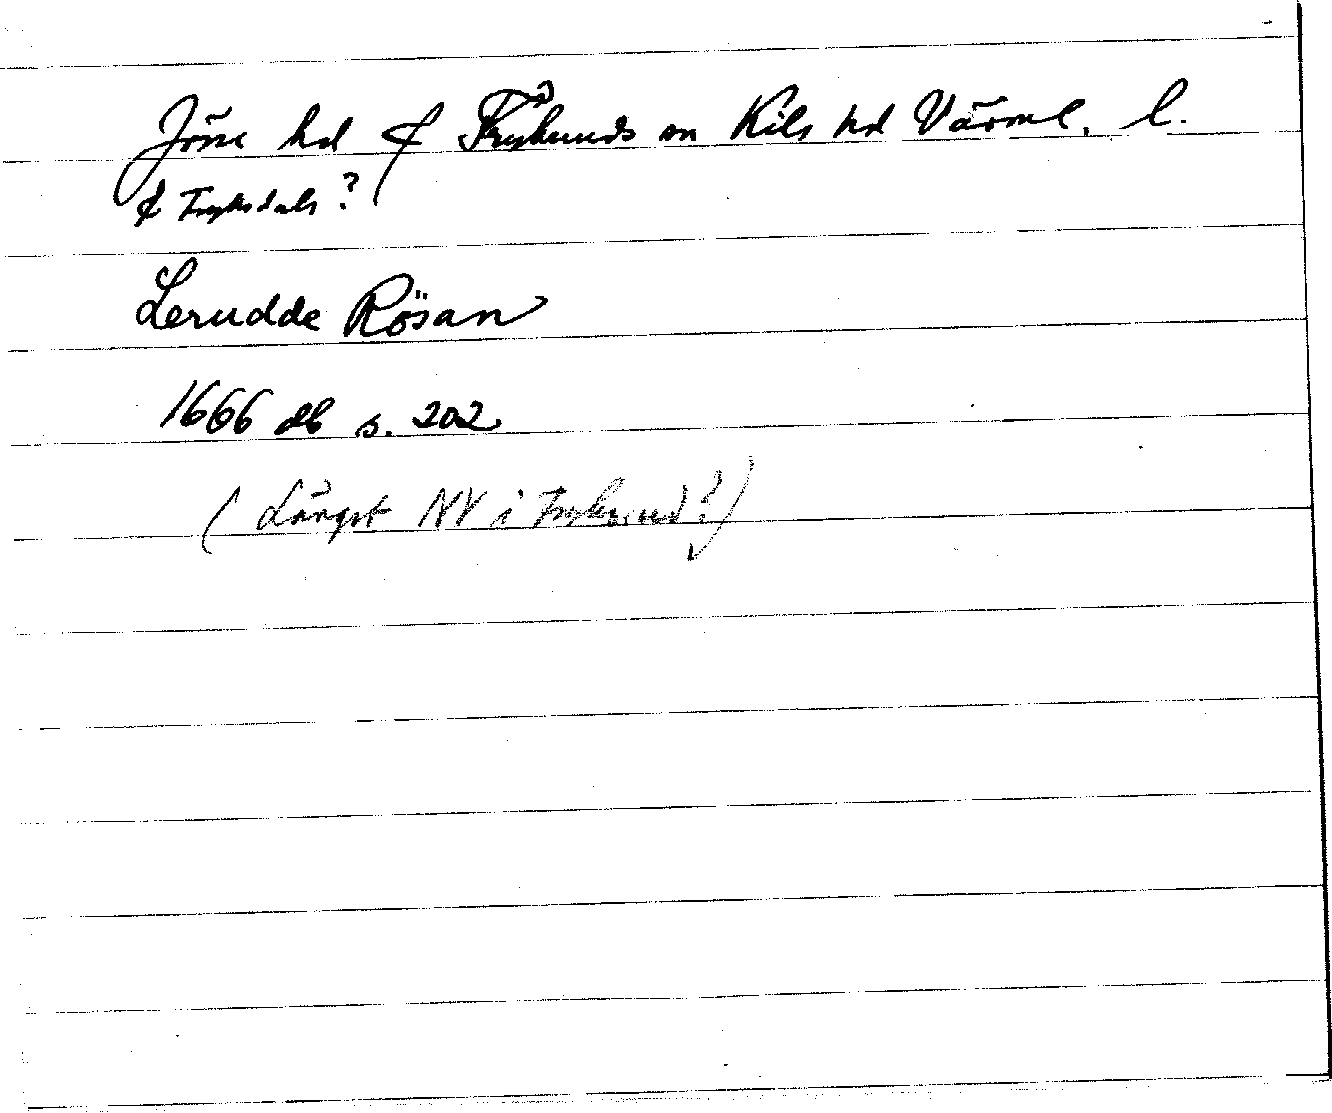 Jösse hd & Frykeruds sn Kils hd Värml. l.
& Fryksdals?
Lerudde Rösan
1666 db s. 202
(Längst NV i Frykerud?)